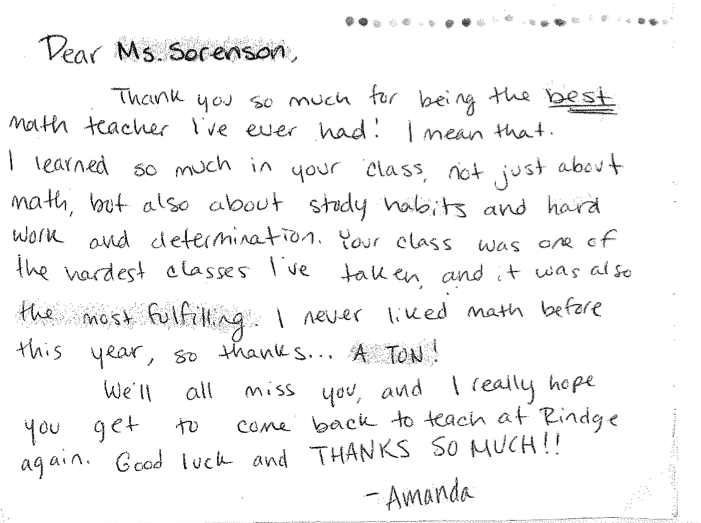 Dear Ms. Sorenson,
Thank you so much for being the best
math teacher I've ever had! I mean that.
I learned so much in your class, not just about
math, but also about study habits and hard
work and determination. Your class was one of
the hardest classes I've taken, and it was also
the most fulfilling. I never liked math before
this year, so thanks... A TON!
We'll all miss you, and I really hope
you get to come back to teach at Rindge
again. Good luck and THANKS SO MUCH!!
- Amanda